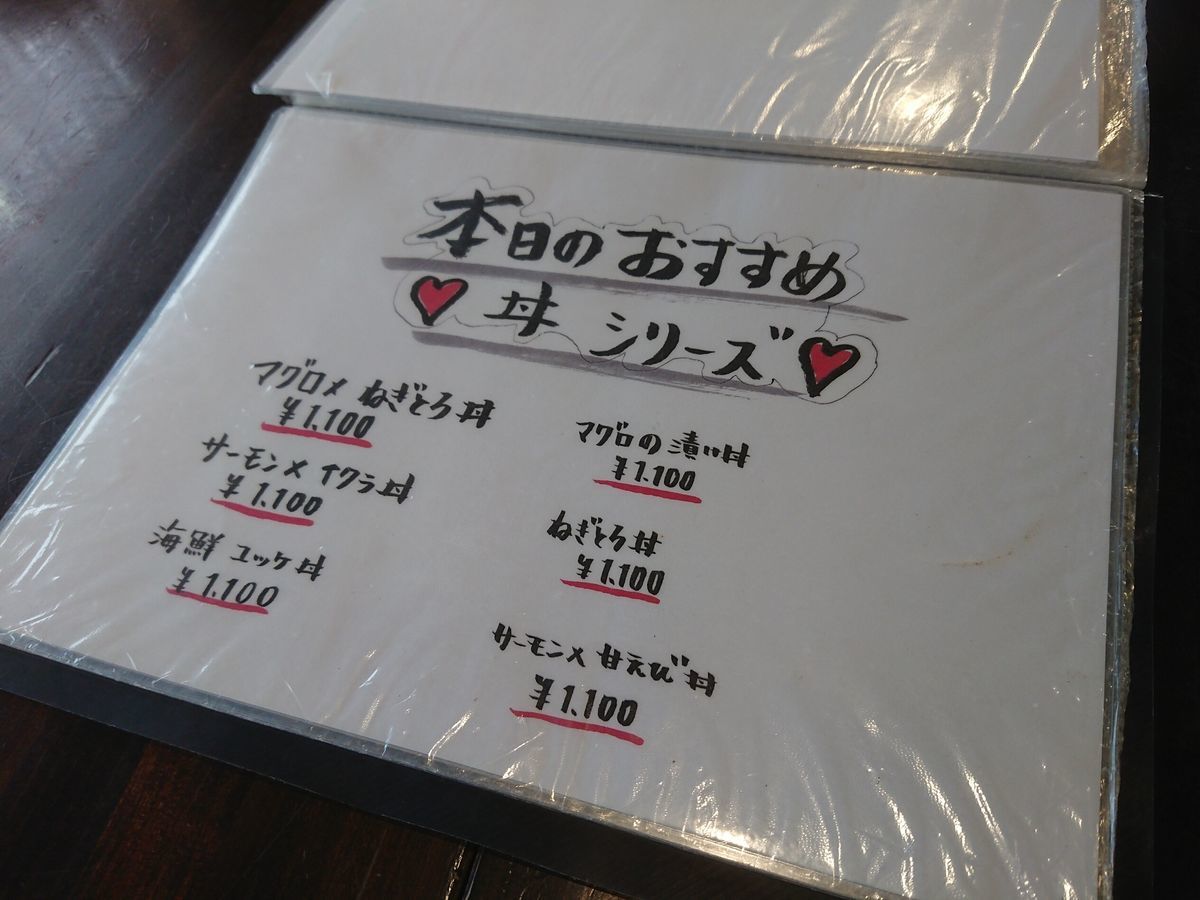 本日のおすすめ
丼 シリーズ
マグロ× ねぎとろ丼
¥1.100
サーモン× イクラ丼
¥1.100
海鮮 ユッケ丼
¥1.100
マグロの漬け丼
¥1.100
ねぎとろ丼
¥1.100
サーモン× 甘えび丼
¥1.100